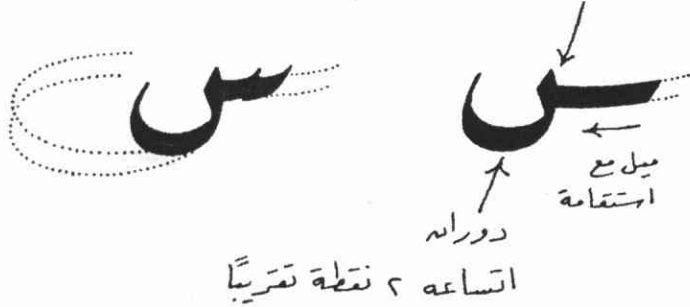 س س
ميل مع
استقامة
دوران
اتساعه ٢ نقطة تقريبًا